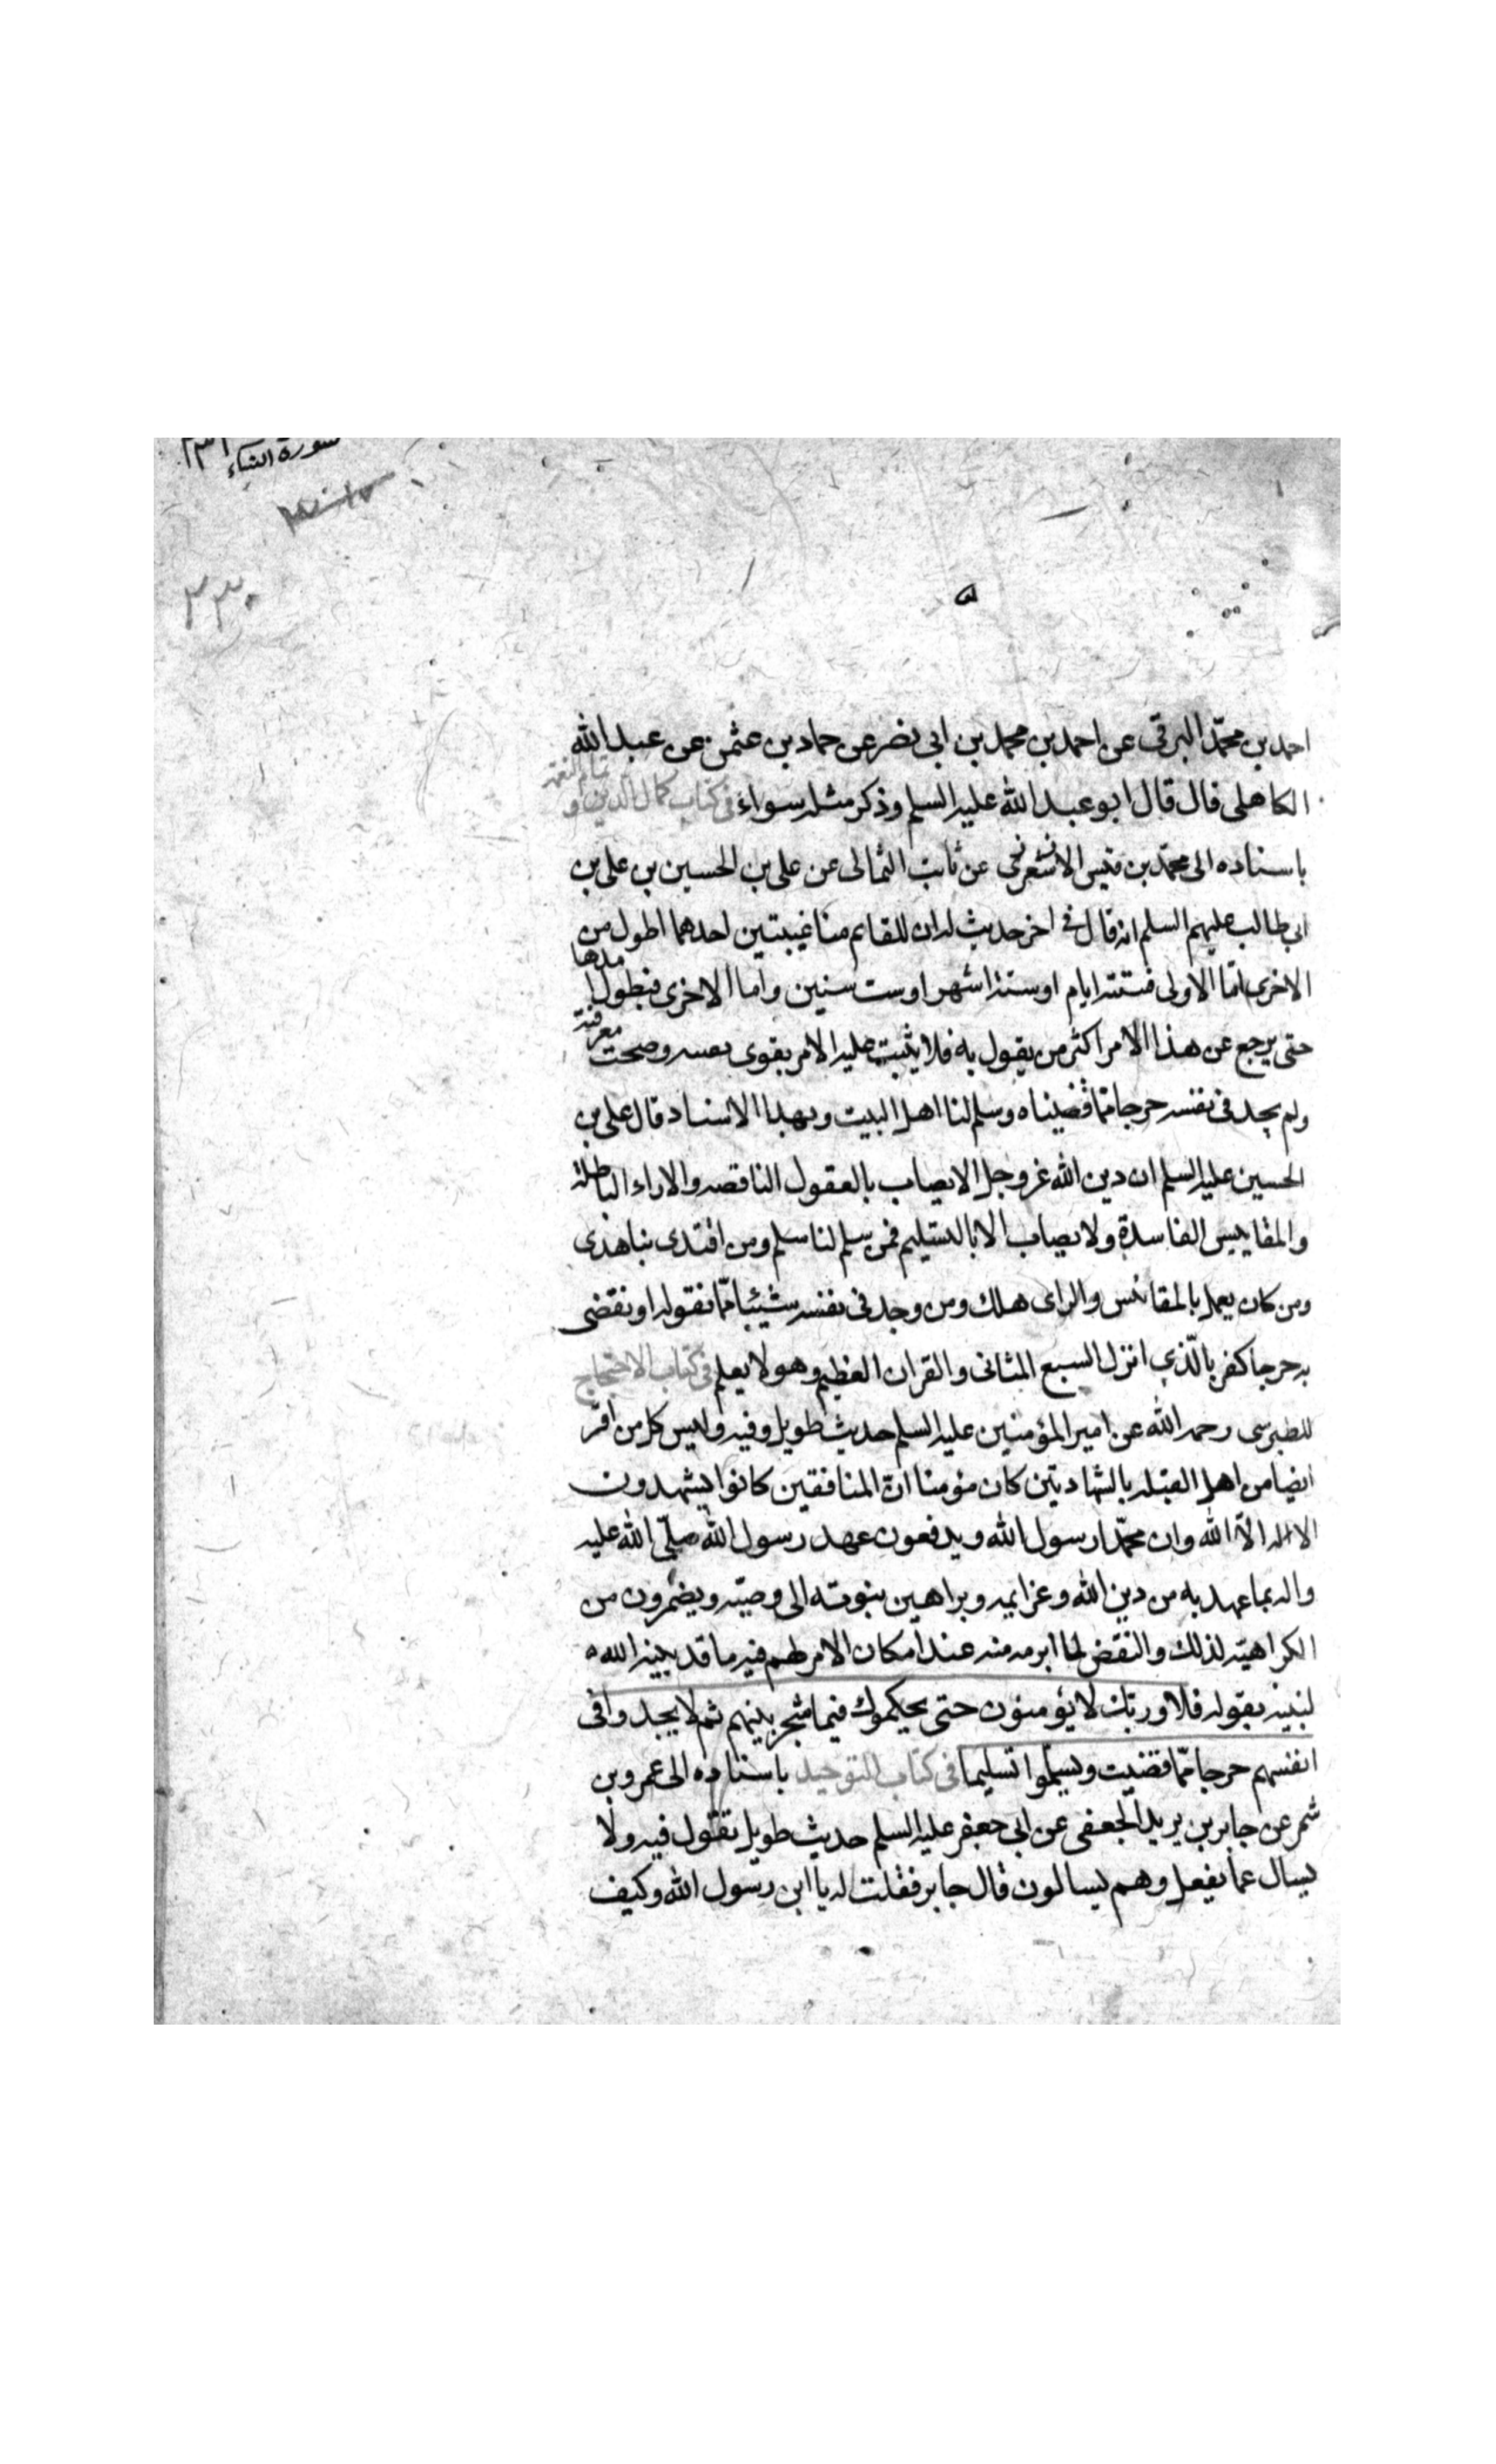 سورة النساء
٢٣٠
احمد بن محمّد البرقى عن احمد بن محمد بن ابى نصر عن حماد بن عثمن عن عبد الله
الكاهلى قال قال ابو عبد الله عليه السلم وذكر مثله سواء فى كتاب كمال الدين و تمام النعمه
باسناده الى محمّد بن قيس الاشعرى عن ثابت الثمالى عن على بن الحسين بن على بن
ابى طالب عليهم السلم انه قال فى اخر حديث له ان للقايم منا غيبتين احدهما اطول من
الاخرى امّا الاولى فستة ايام او ستة اشهر او ست سنين واما الاخرى فيطول امدها
حتى يرجع عن هذا الامر اكثر من يقول به فلا يثبت عليه الا من يقوى يقينه وصحت معرفته
ولم يجد فى نفسه حرجا ممّا قضيناه وسلم لنا اهل البيت وبهذا الاسناد قال على بن
الحسين عليه السلم ان دين الله عز وجل لا يصاب بالعقول الناقصه والاراء الباطلة
والمقاييس الفاسدة ولا يصاب الا بالتسليم فمن سلم لنا سلم ومن اقتدى بنا هدى
ومن كان يعمل بالمقائس والراى هلك ومن وجد فى نفسه شيئا ممّا نقوله او نقضى
به حرجا كفر بالّذى انزل السبع المثانى والقران العظيم وهو لا يعلم فى كتاب الاحتجاج
للطبرسى رحمه الله عن امير المؤمنين عليه السلم حديث طويل وفيه وليس كل من اقرّ
ايضا من اهل القبله بالشهادتين كان مؤمنا انّ المنافقين كانوا يشهدون
الا اله الاّ الله وان محمّدا رسول الله ويدفعون عهد رسول الله صلّى الله عليه
واله بما عهد به من دين الله وعزايمه وبراهين نبوته الى وصيّه ويضمرون من
الكراهيّة لذلك والنقض لما ابرمه منه عند امكان الامر لهم فيه ما قد بينه الله
لنبيّه بقوله فلا وربك لا يؤمنون حتى يحكموك فيما شجر بينهم ثم لا يجدوا فى
انفسهم حرجا ممّا قضيت ويسلّموا تسليما فى كتاب التوحيد باسناده الى عمرو بن
شمر عن جابر بن يزيد الجعفى عن ابى جعفر عليه السلم حديث طويل تقول فيه ولا
يسال عما يفعل وهم يسالون قال جابر فقلت له يا ابن رسول الله وكيف